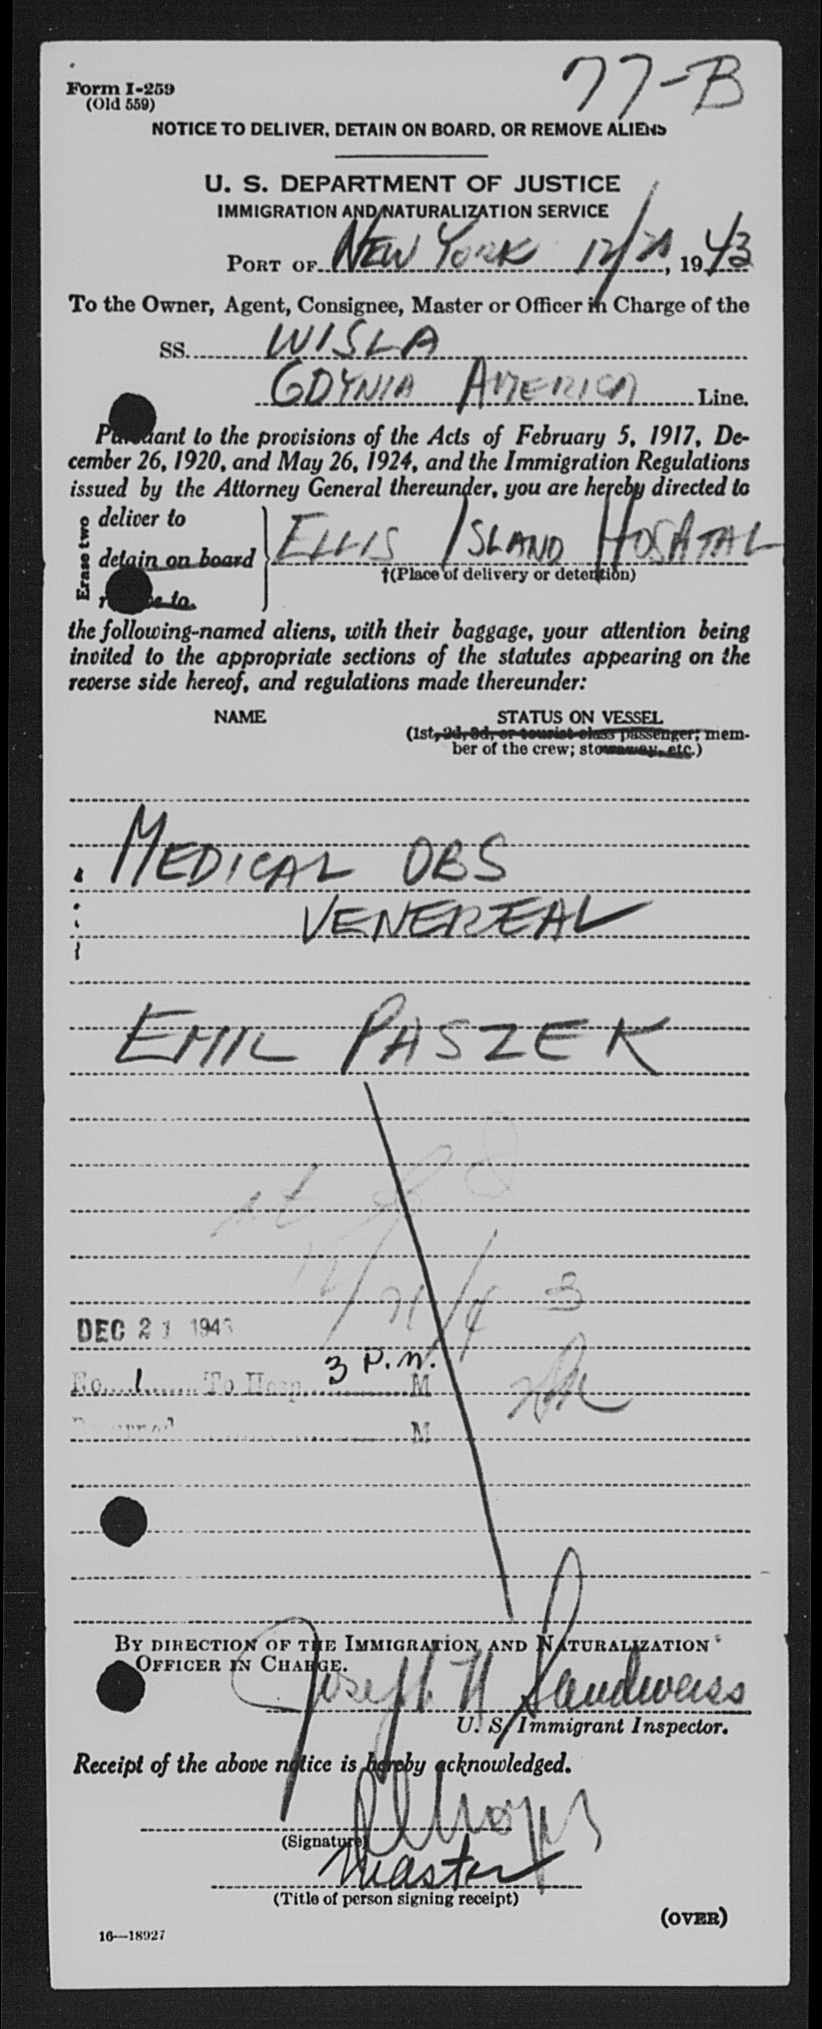 Form I-259
(Old 559)
77-B
NOTICE TO DELIVER, DETAIN ON BOARD, OR REMOVE ALIENS
U. S. DEPARTMENT OF JUSTICE
IMMIGRATION AND NATURALIZATION SERVICE
PORT OF NEW YORK 12/21, 1943
To the Owner, Agent, Consignee, Master or Officer in Charge of the
SS. WISLA
GDYNIA AMERICA Line.
Pursuant to the provisions of the Acts of February 5, 1917, De-
cember 26, 1920, and May 26, 1924, and the Immigration Regulations
issued by the Attorney General thereunder, you are hereby directed to
Erase two
deliver to
detain on board
ELLIS ISLAND HOSPITAL
†(Place of delivery or detention)
to
the following-named aliens, with their baggage, your attention being
invited to the appropriate sections of the statutes appearing on the
reverse side hereof, and regulations made thereunder:
NAME STATUS ON VESSEL
(1st, 2d, 3d, or tourist class passenger; mem-
ber of the crew; stowaway, etc.)
MEDICAL OBS
VENEREAL
EMIL PASZEK
12/21/43
DEC 21 1943
No. 1 To Hosp. 3 P.M. M
M
BY DIRECTION OF THE IMMIGRATION AND NATURALIZATION
OFFICER IN CHARGE.
Joseph H Sandweiss
U. S. Immigrant Inspector.
Receipt of the above notice is hereby acknowledged.
(Signature)
Master
(Title of person signing receipt)
(OVER)
16—18927